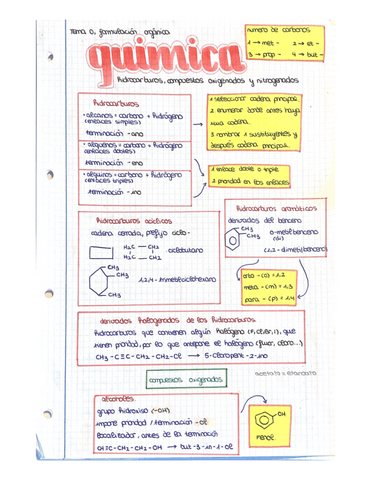 Tema 0, formulación orgánica
química
hidrocarburos, compuestos oxigenados y nitrogenados
número de carbonos
1 → met - 2 → et -
3 → prop - 4 → but -
hidrocarburos
• alcanos = carbono + hidrógeno
(enlaces simples)
terminación - ano
• alquenos = carbono + hidrógeno
(enlaces dobles)
terminación - eno
• alquinos = carbono + hidrógeno
(enlaces triples)
terminación - ino
1 seleccionar cadena principal.
2 enumerar donde antes haya
cadena.
3 nombrar 1º sustituyentes y
después cadena principal.
1 enlace doble o triple
2 prioridad en los enlaces
hidrocarburos cíclicos
cadena cerrada, prefijo ciclo-
H2C - CH2
H2C - CH2
ciclobutano
CH3
CH3
CH3
1,2,4-trimetilciclohexano
hidrocarburos aromáticos
derivados del benceno
CH3
o-metilbenceno
(di)
(1,2-dimetilbenceno)
orto - (o) = 1,2
meta - (m) = 1,3
para - (p) = 1,4
derivados halogenados de los hidrocarburos
hidrocarburos que contienen algún halógeno (F, Cl, Br, I), que
tienen prioridad, por lo que antepone el halógeno (fluor, cloro...)
CH3 - C≡C - CH2 - CH2 - Cl → 5-cloropent-2-ino
compuestos oxigenados
alcoholes
grupo hidroxilo (-OH)
importe prioridad / terminación -ol
localizador, antes de la terminación
CH≡C - CH2 - CH2 - OH → but-3-in-1-ol
OH
fenol